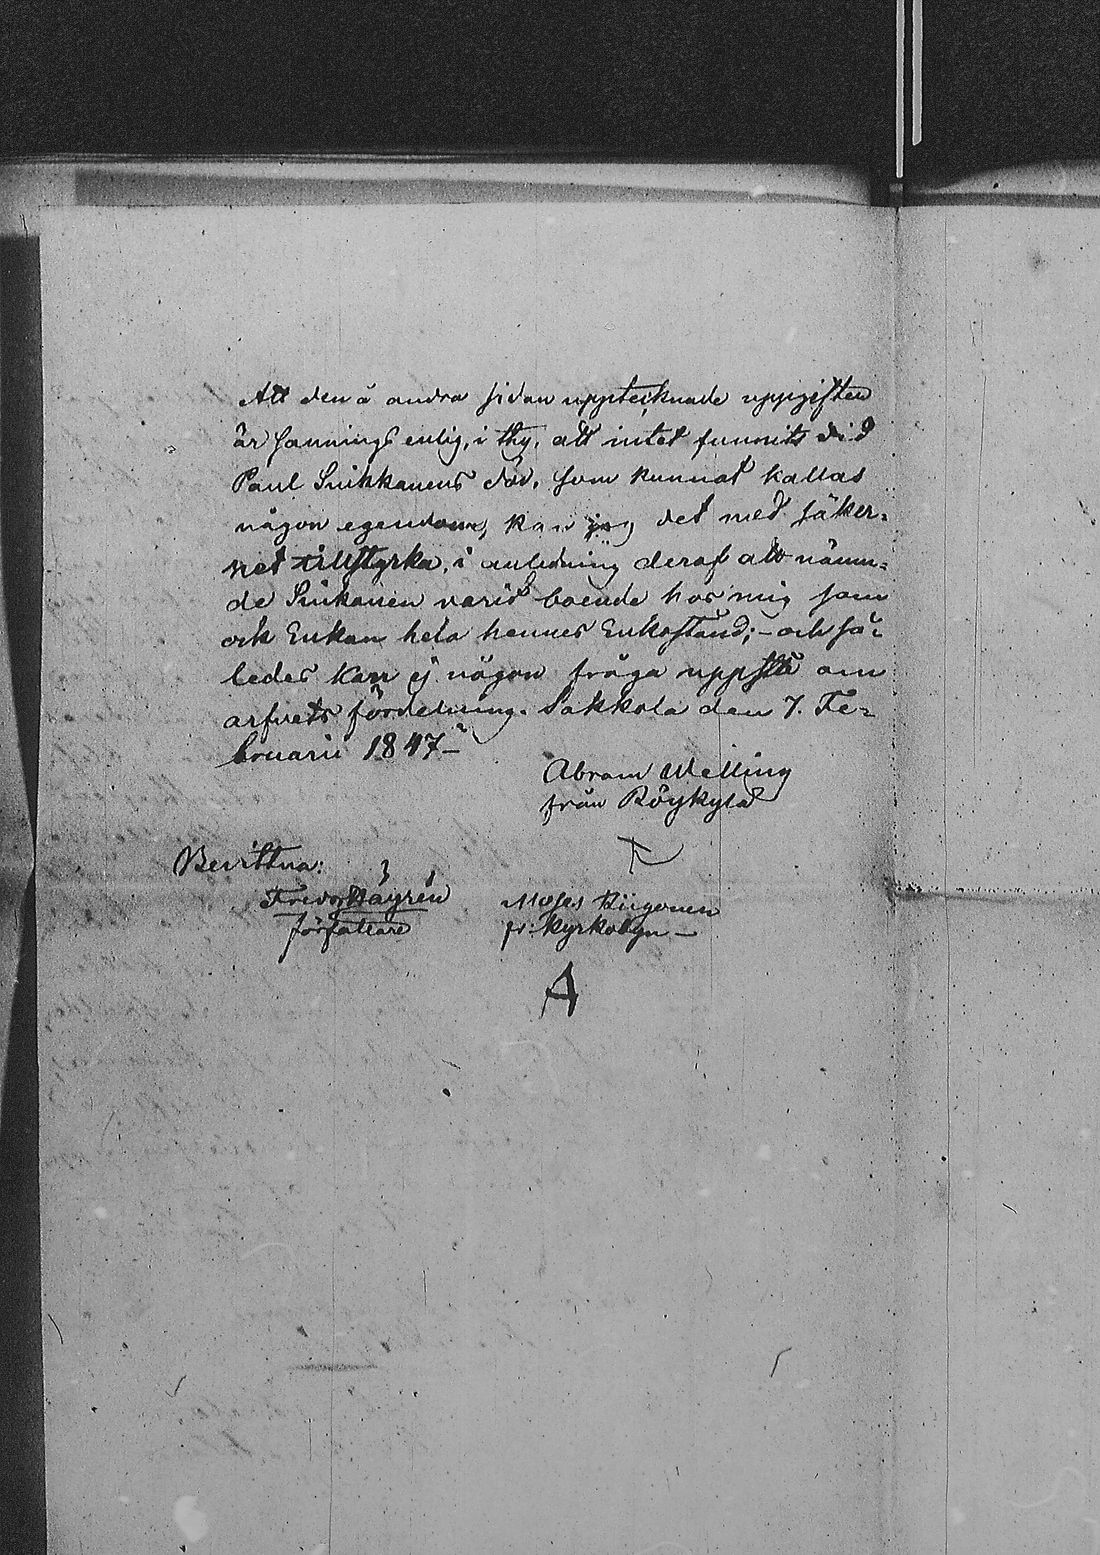 Att den å andra sidan upptecknade uppgiften
är sannings enlig, i thy, att intet funnits vid
Paul Snikkanens död, som kunnat kallas
någon egendom, kan jag det med säker-
het tillstyrka, i anledning deraf att nämn-
de Snikanen varit boende hos mig som
ock Enkan hela hennes Enkostånd; - och så-
ledes kan ej någon fråga uppstå om
arfvets fördelning. Sakkola den 7. Fe-
bruarii 1847 -
Abram Welling
från Röykylä
Bevittna:
Fredr Häyrén
författare
Moses Kiigonen
fr: Kyrkobyn -
A